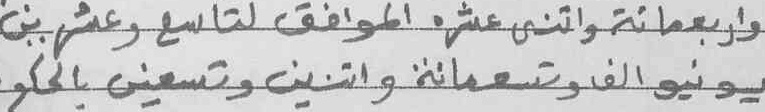 واربعمائة واثنى عشره الموافق لتاسع وعشرين
يونيو الف وتسعمائة واثنين وتسعين بالحكم